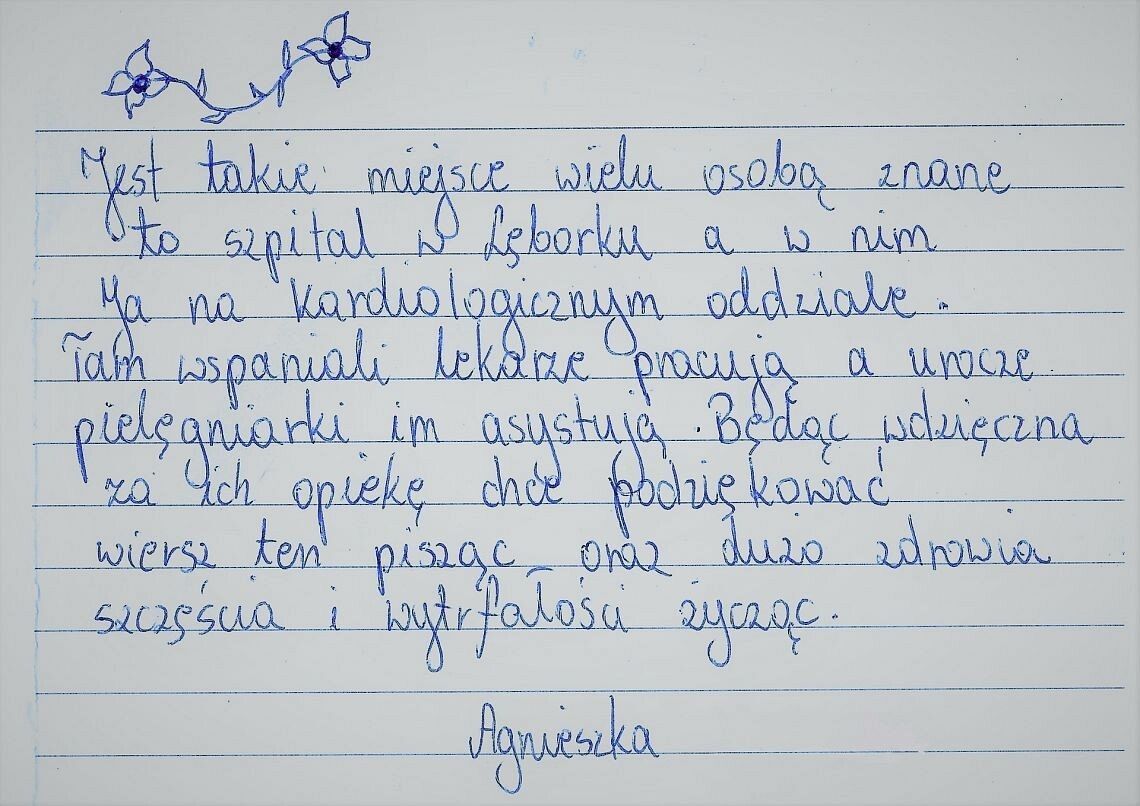 Jest takie miejsce wielu osobą znane
to szpital w Lęborku a w nim
Ja na kardiologicznym oddziale.
Tam wspaniali lekarze pracują a urocze
pielęgniarki im asystują. Będąc wdzięczna
za ich opiekę chcę podziękować
wiersz ten pisząc oraz dużo zdrowia
szczęścia i wytrfałości życząc.
Agnieszka